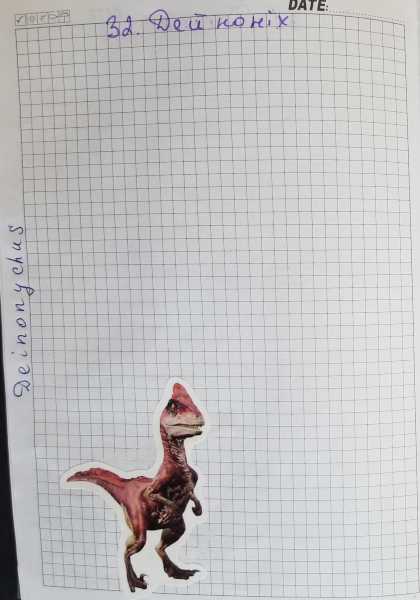 DATE:
32. Дейноніх
Deinonychus